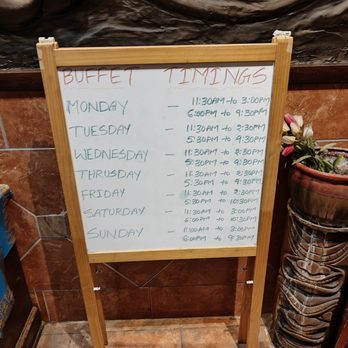 BUFFET TIMINGS
MONDAY - 11:30AM to 3:00PM
6:00PM to 9:30PM
TUESDAY - 11:30AM to 2:30PM
5:30PM to 9:30PM
WEDNESDAY - 11:30AM to 2:30PM
5:30PM to 9:30PM
THRUSDAY - 11:30AM to 2:30PM
5:30PM to 9:30PM
FRIDAY - 11:30AM to 2:30PM
5:30PM to 10:30PM
SATURDAY - 11:30AM to 3:00PM
6:00PM to 10:30PM
SUNDAY - 11:00AM to 3:00PM
6:00PM to 9:30PM